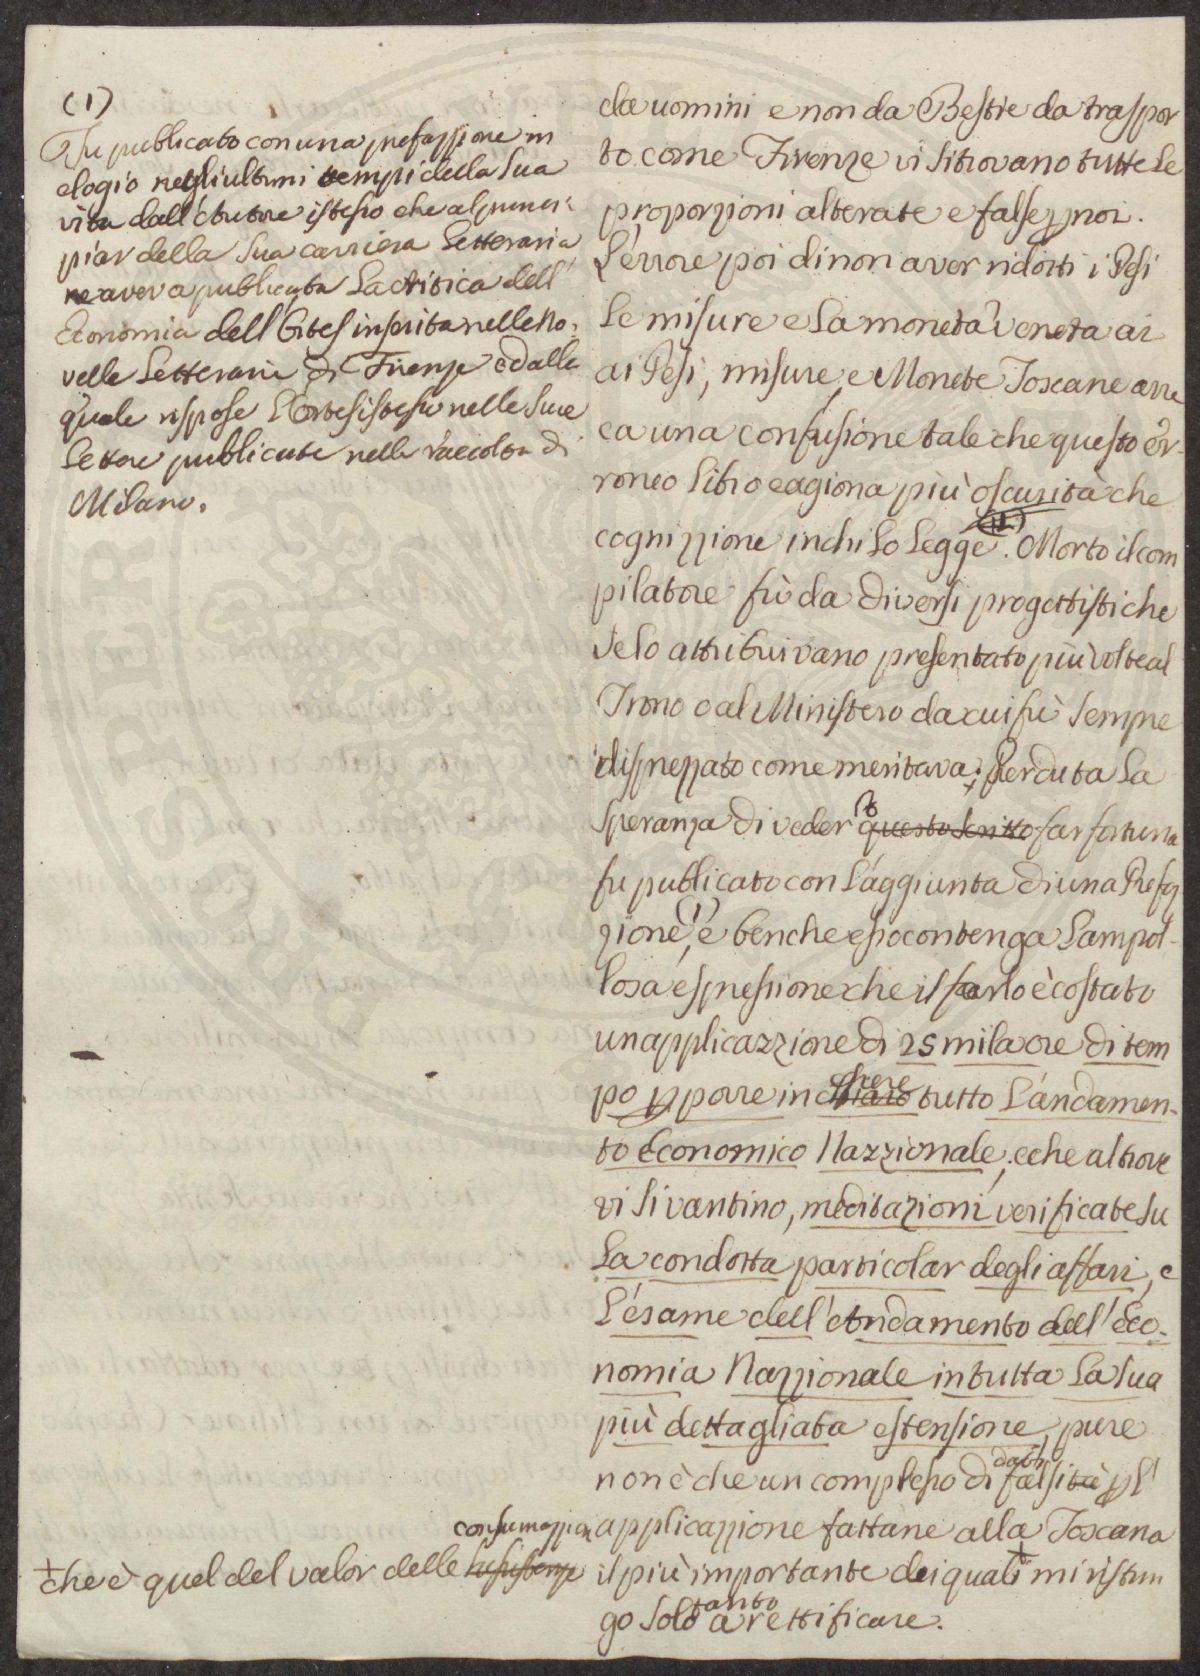 (1)
Fu publicato con una prefazzione in
elogio negli ultimi tempi della Sua
vita dall'Autore istesso che al princi=
piar della Sua carriera Letteraria
ne aveva publicata La critica dell'
Economia dell'Ortes inserita nelle No=
velle Letterarie di Firenze e dalla
quale rispose L'Ortes istesso nelle Sue
Lettere publicate nella raccolta di
Milano.
+ che è quel del valor delle consumazzioni
da uomini e non da Bestie da traspor
to come Firenze vi si trovano tutte Le
proporzioni alterate e false p noi.
L'errore poi di non aver ridotti i Pesi
Le misure e La moneta veneta ai
ai Pesi, misure, e Monete Toscane arre
ca una confusione tale che questo er-
roneo Libro cagiona più oscurità che
cognizzione in chi Lo Legge. Morto il com
pilatore fù da diversi progettisti che
se lo attribuivano presentato più volte al
Trono o al Ministero da cui fù sempre
disprezzato come meritava; perduta La
speranza di veder questo scritto far fortuna
fu publicato con L'aggiunta di una Prefa
zione (1), e benche esso contenga L'ampol-
losa espressione che il farlo è costato
un applicazzione di 25 mila ore di tem
po p porre in chiaro tutto L'andamen-
to Economico Nazzionale, e che altrove
vi si vantino, meditazioni verificate su
La condotta particolar degli affari, e
L'esame dell'Andamento dell'Eco-
nomia Nazzionale in tutta La sua
più dettagliata estensione, pure
non è che un complesso di dati falsi p l'
applicazzione fattane alla Toscana
il più importante dei quali + mi ristrin
go solo tanto a rettificare.